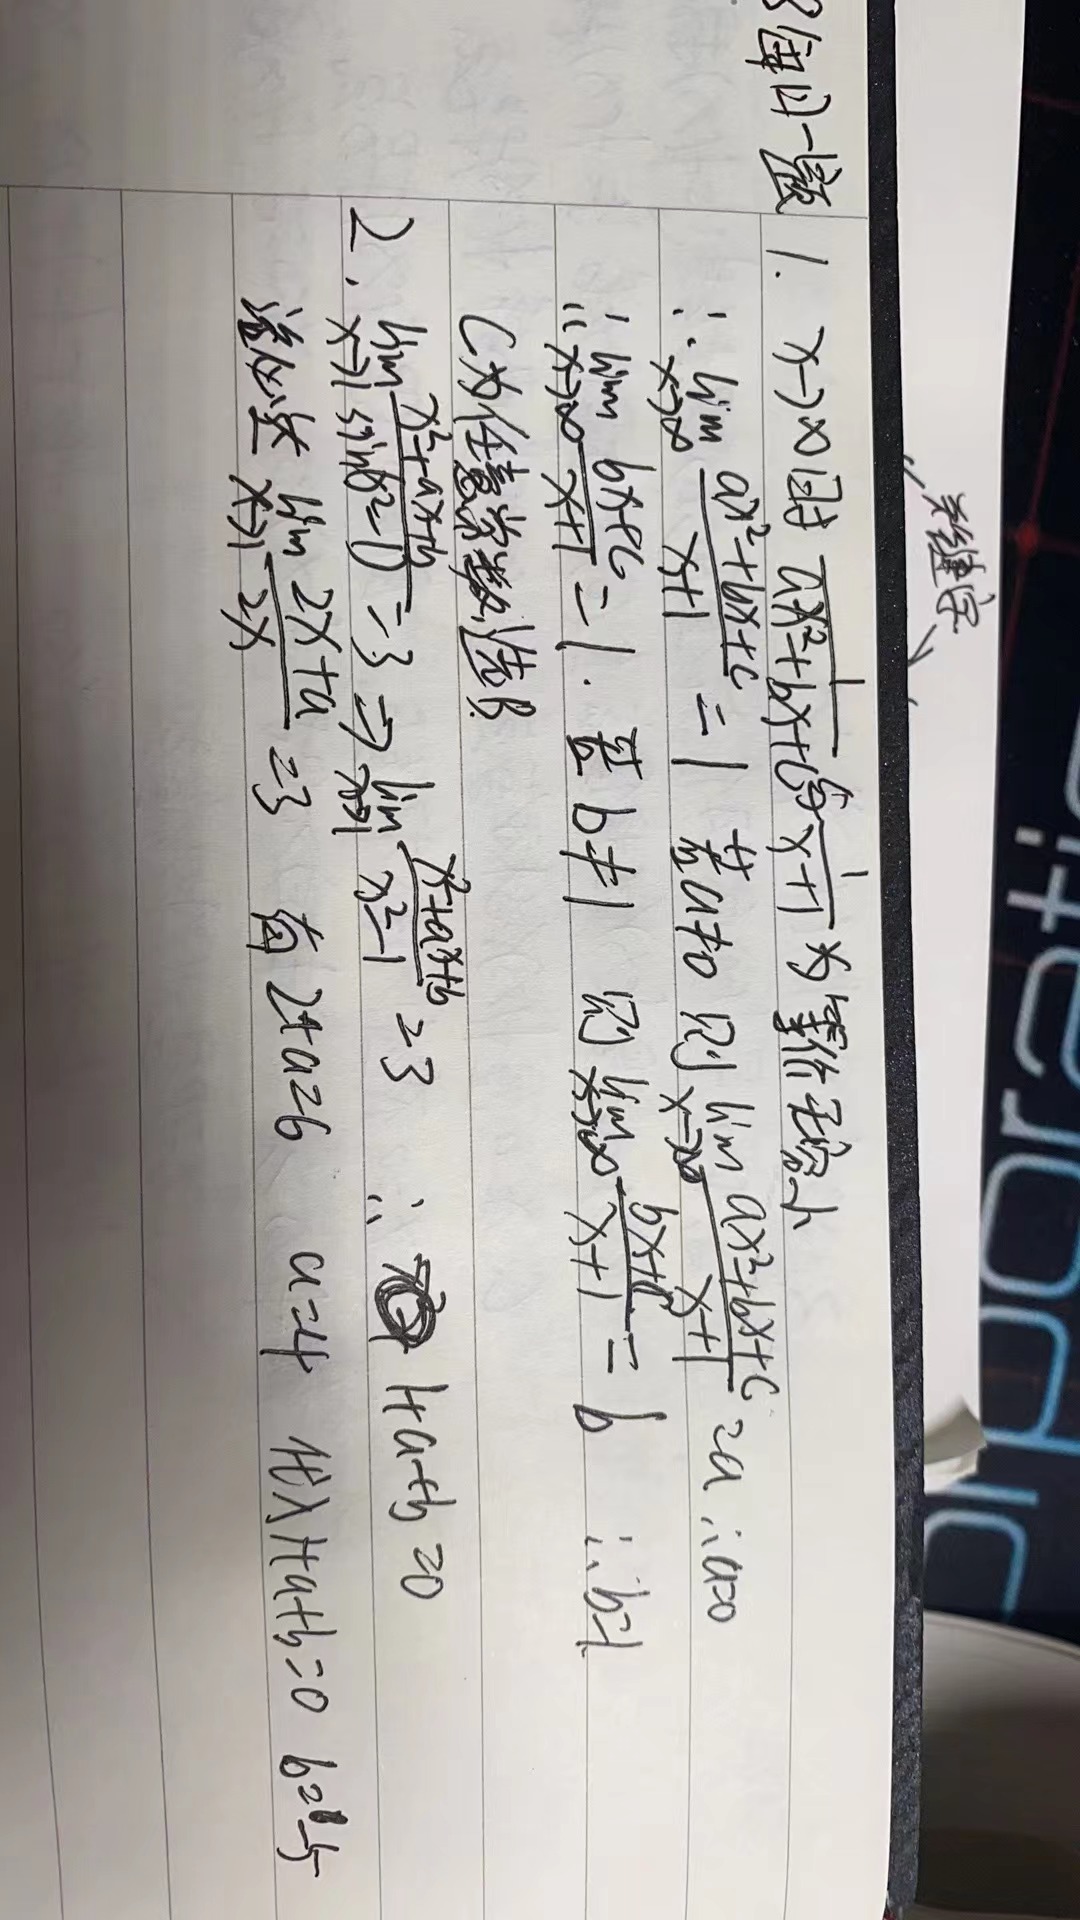 关键字
每日一题
1. x→∞时 1/(ax²+bx+c) 与 1/(x+1) 为等价无穷小
∴ lim x→∞ (ax²+bx+c)/(x+1) = 1 若a≠0 则 lim x→∞ (ax²+bx+c)/(x+1) = a ∴a=0
∴ lim x→∞ (bx+c)/(x+1) = 1. 若 b≠1 则 lim x→∞ (bx+c)/(x+1) = b ∴b=1
C为任意常数,选B
2. lim x→1 (x²+ax+b)/sin(x²-1) = 3 ⇒ lim x→1 (x²+ax+b)/(x²-1) = 3 ∴ 1+a+b=0
洛必达 lim x→1 (2x+a)/2x = 3 有 2+a=6 a=4 代入1+a+b=0 b=-5
poratio